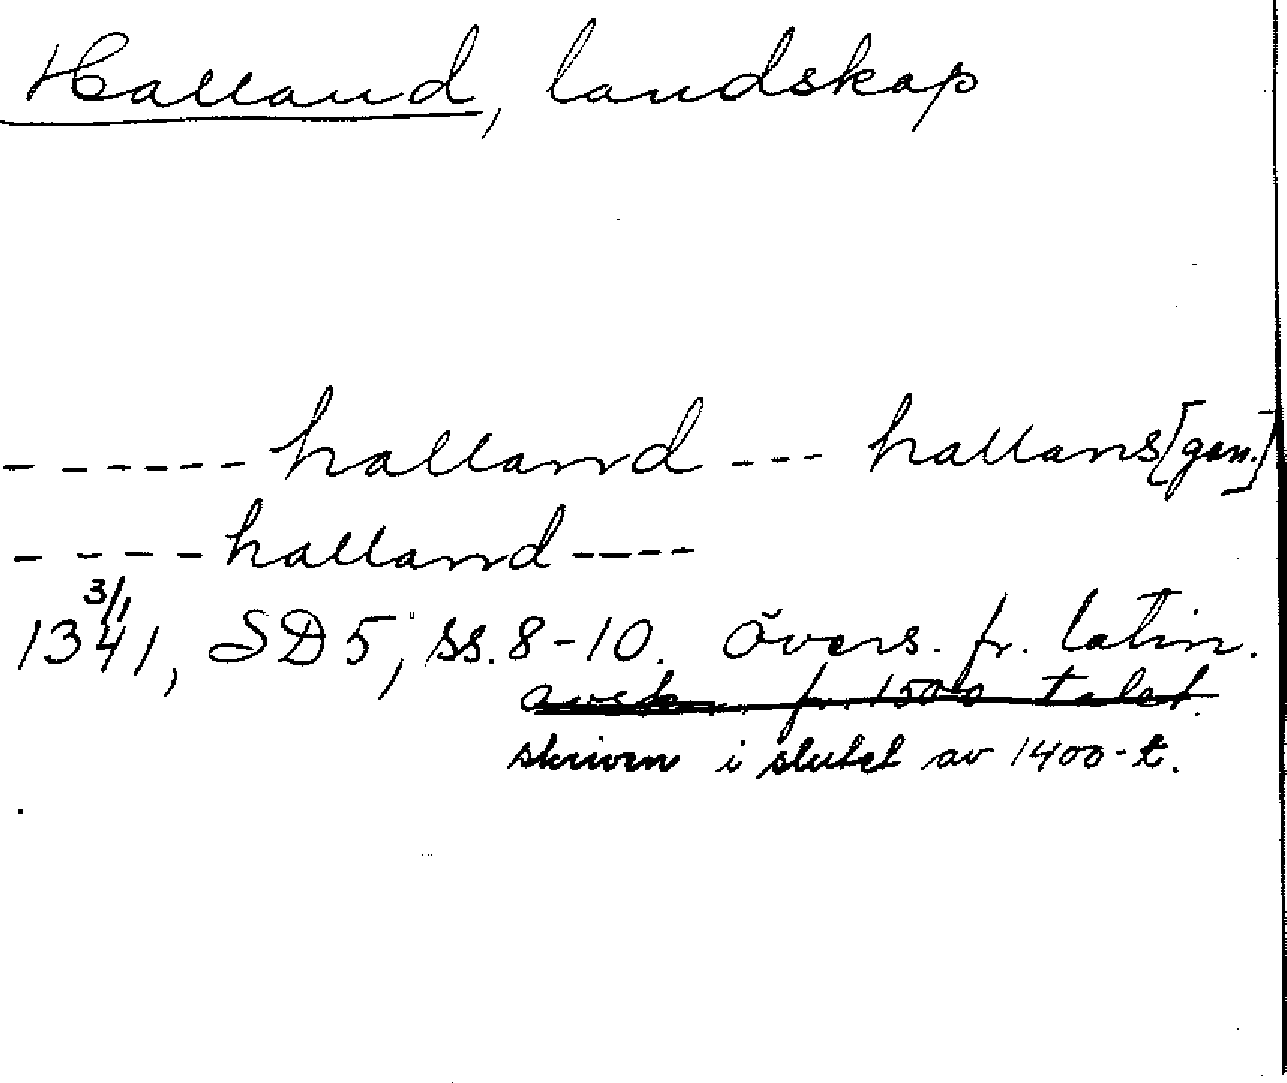 Halland, landskap
------halland --- hallans [gen.]
----halland----
3/1
1341, SD 5, ss. 8-10. övers. fr. latin.
avsk. fr. 1500 talet.
skriven i slutet av 1400-t.